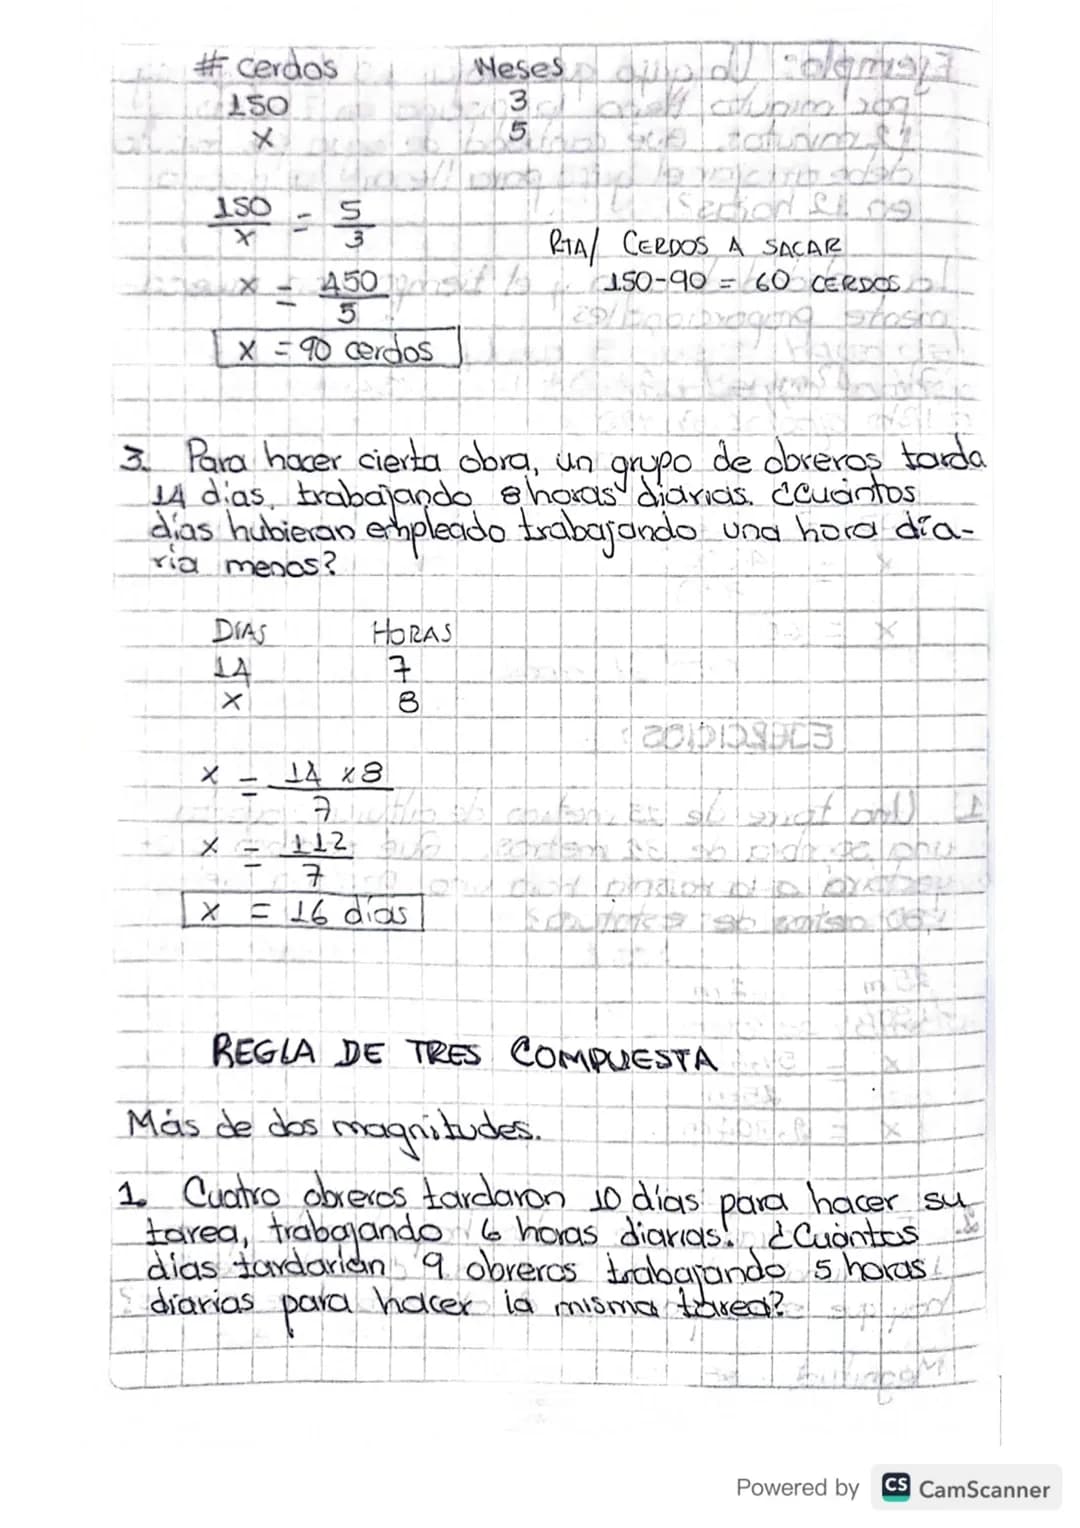 # cerdos Meses
150 3
x 5
150/x = 5/3
RTA/ CERDOS A SACAR
x = 450/5
150-90 = 60 CERDOS
x = 90 cerdos
3. Para hacer cierta obra, un grupo de obreros tarda
14 días, trabajando 8 horas diarias. ¿Cuántos
días hubieran empleado trabajando una hora dia-
ria menos?
DÍAS HORAS
14 7
x 8
x = 14 x 8/7
x = 112/7
x = 16 días
REGLA DE TRES COMPUESTA
Más de dos magnitudes.
1. Cuatro obreros tardaron 10 días para hacer su
tarea, trabajando 6 horas diarias. ¿Cuántos
días tardarían 9 obreros trabajando 5 horas
diarias para hacer la misma tarea?
Powered by CS CamScanner